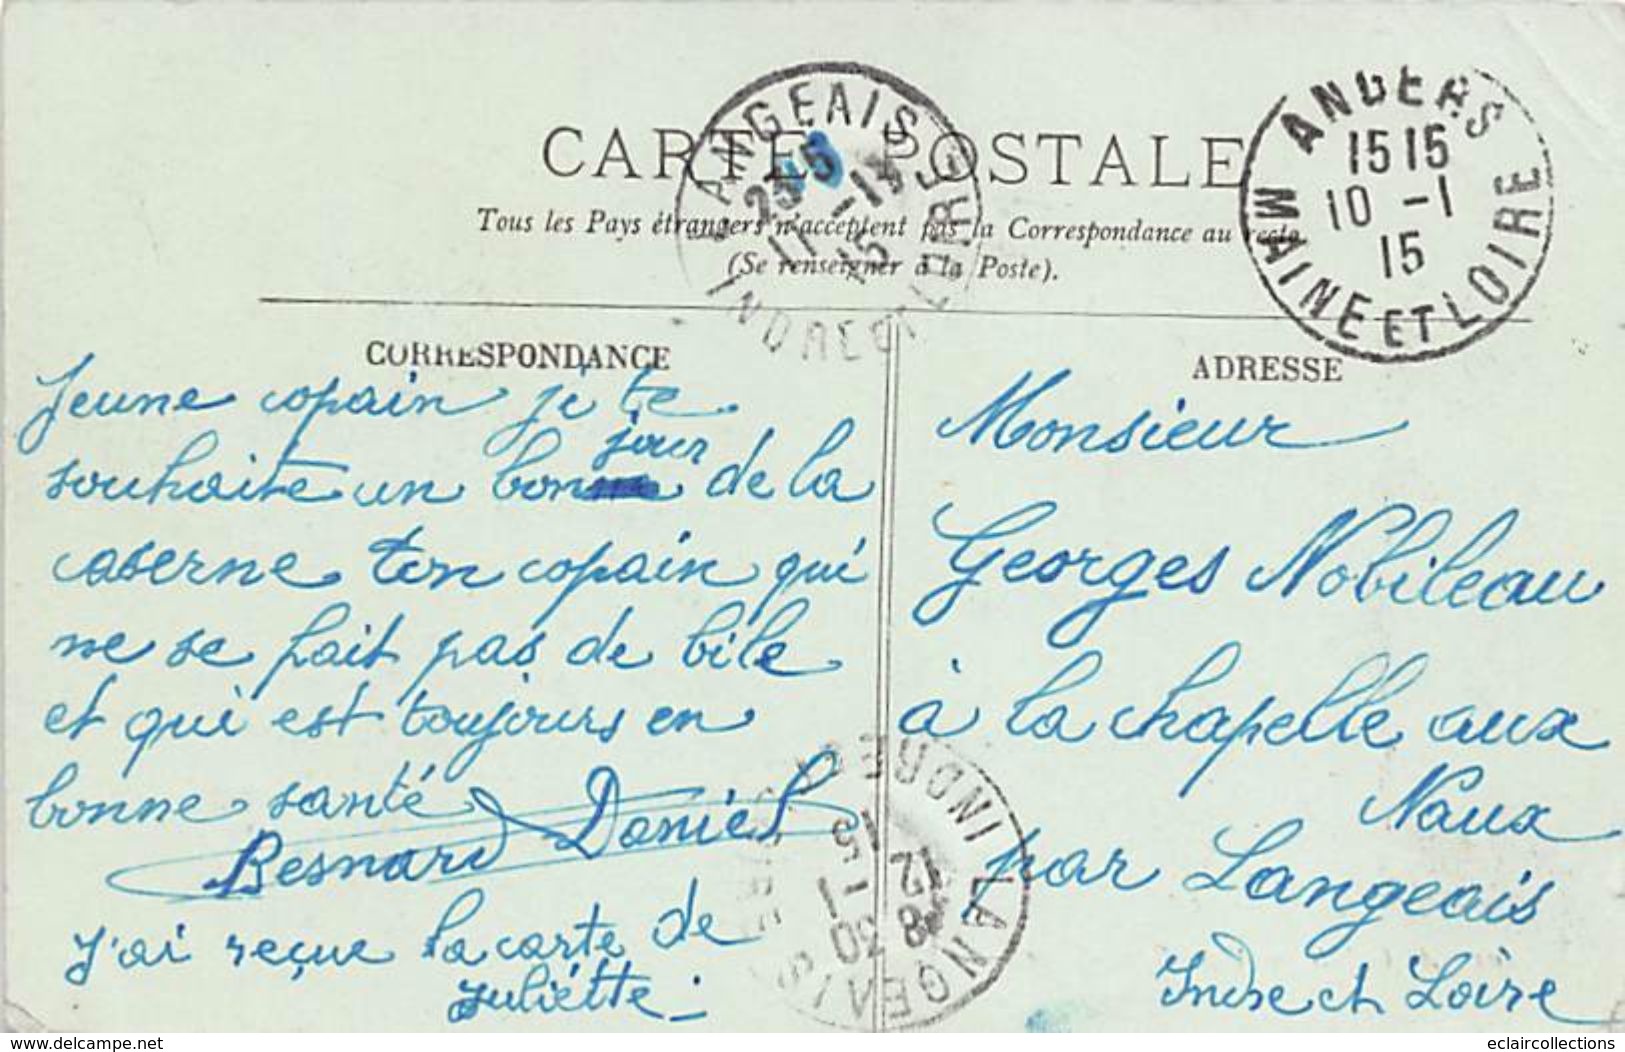 CARTE POSTALE
Tous les Pays étrangers n'acceptent pas la Correspondance au recto
(Se renseigner à la Poste).
LANGEAIS
INDRE ET LOIRE
15
ANGERS
15 15
10 -1
15
MAINE ET LOIRE
CORRESPONDANCE
Jeune copain je te
souhaite un bon jour de la
caserne ton copain qui
ne se fait pas de bile
et qui est toujours en
bonne santé
Besnard Daniel
J'ai reçue la carte de
Juliette
ADRESSE
Monsieur
Georges Nobileau
à la chapelle aux
Naux
par Langeais
Indre et Loire
LANGEAIS
8 30
12 -1
15
INDRE ET LOIRE
www.delcampe.net
eclaircollections